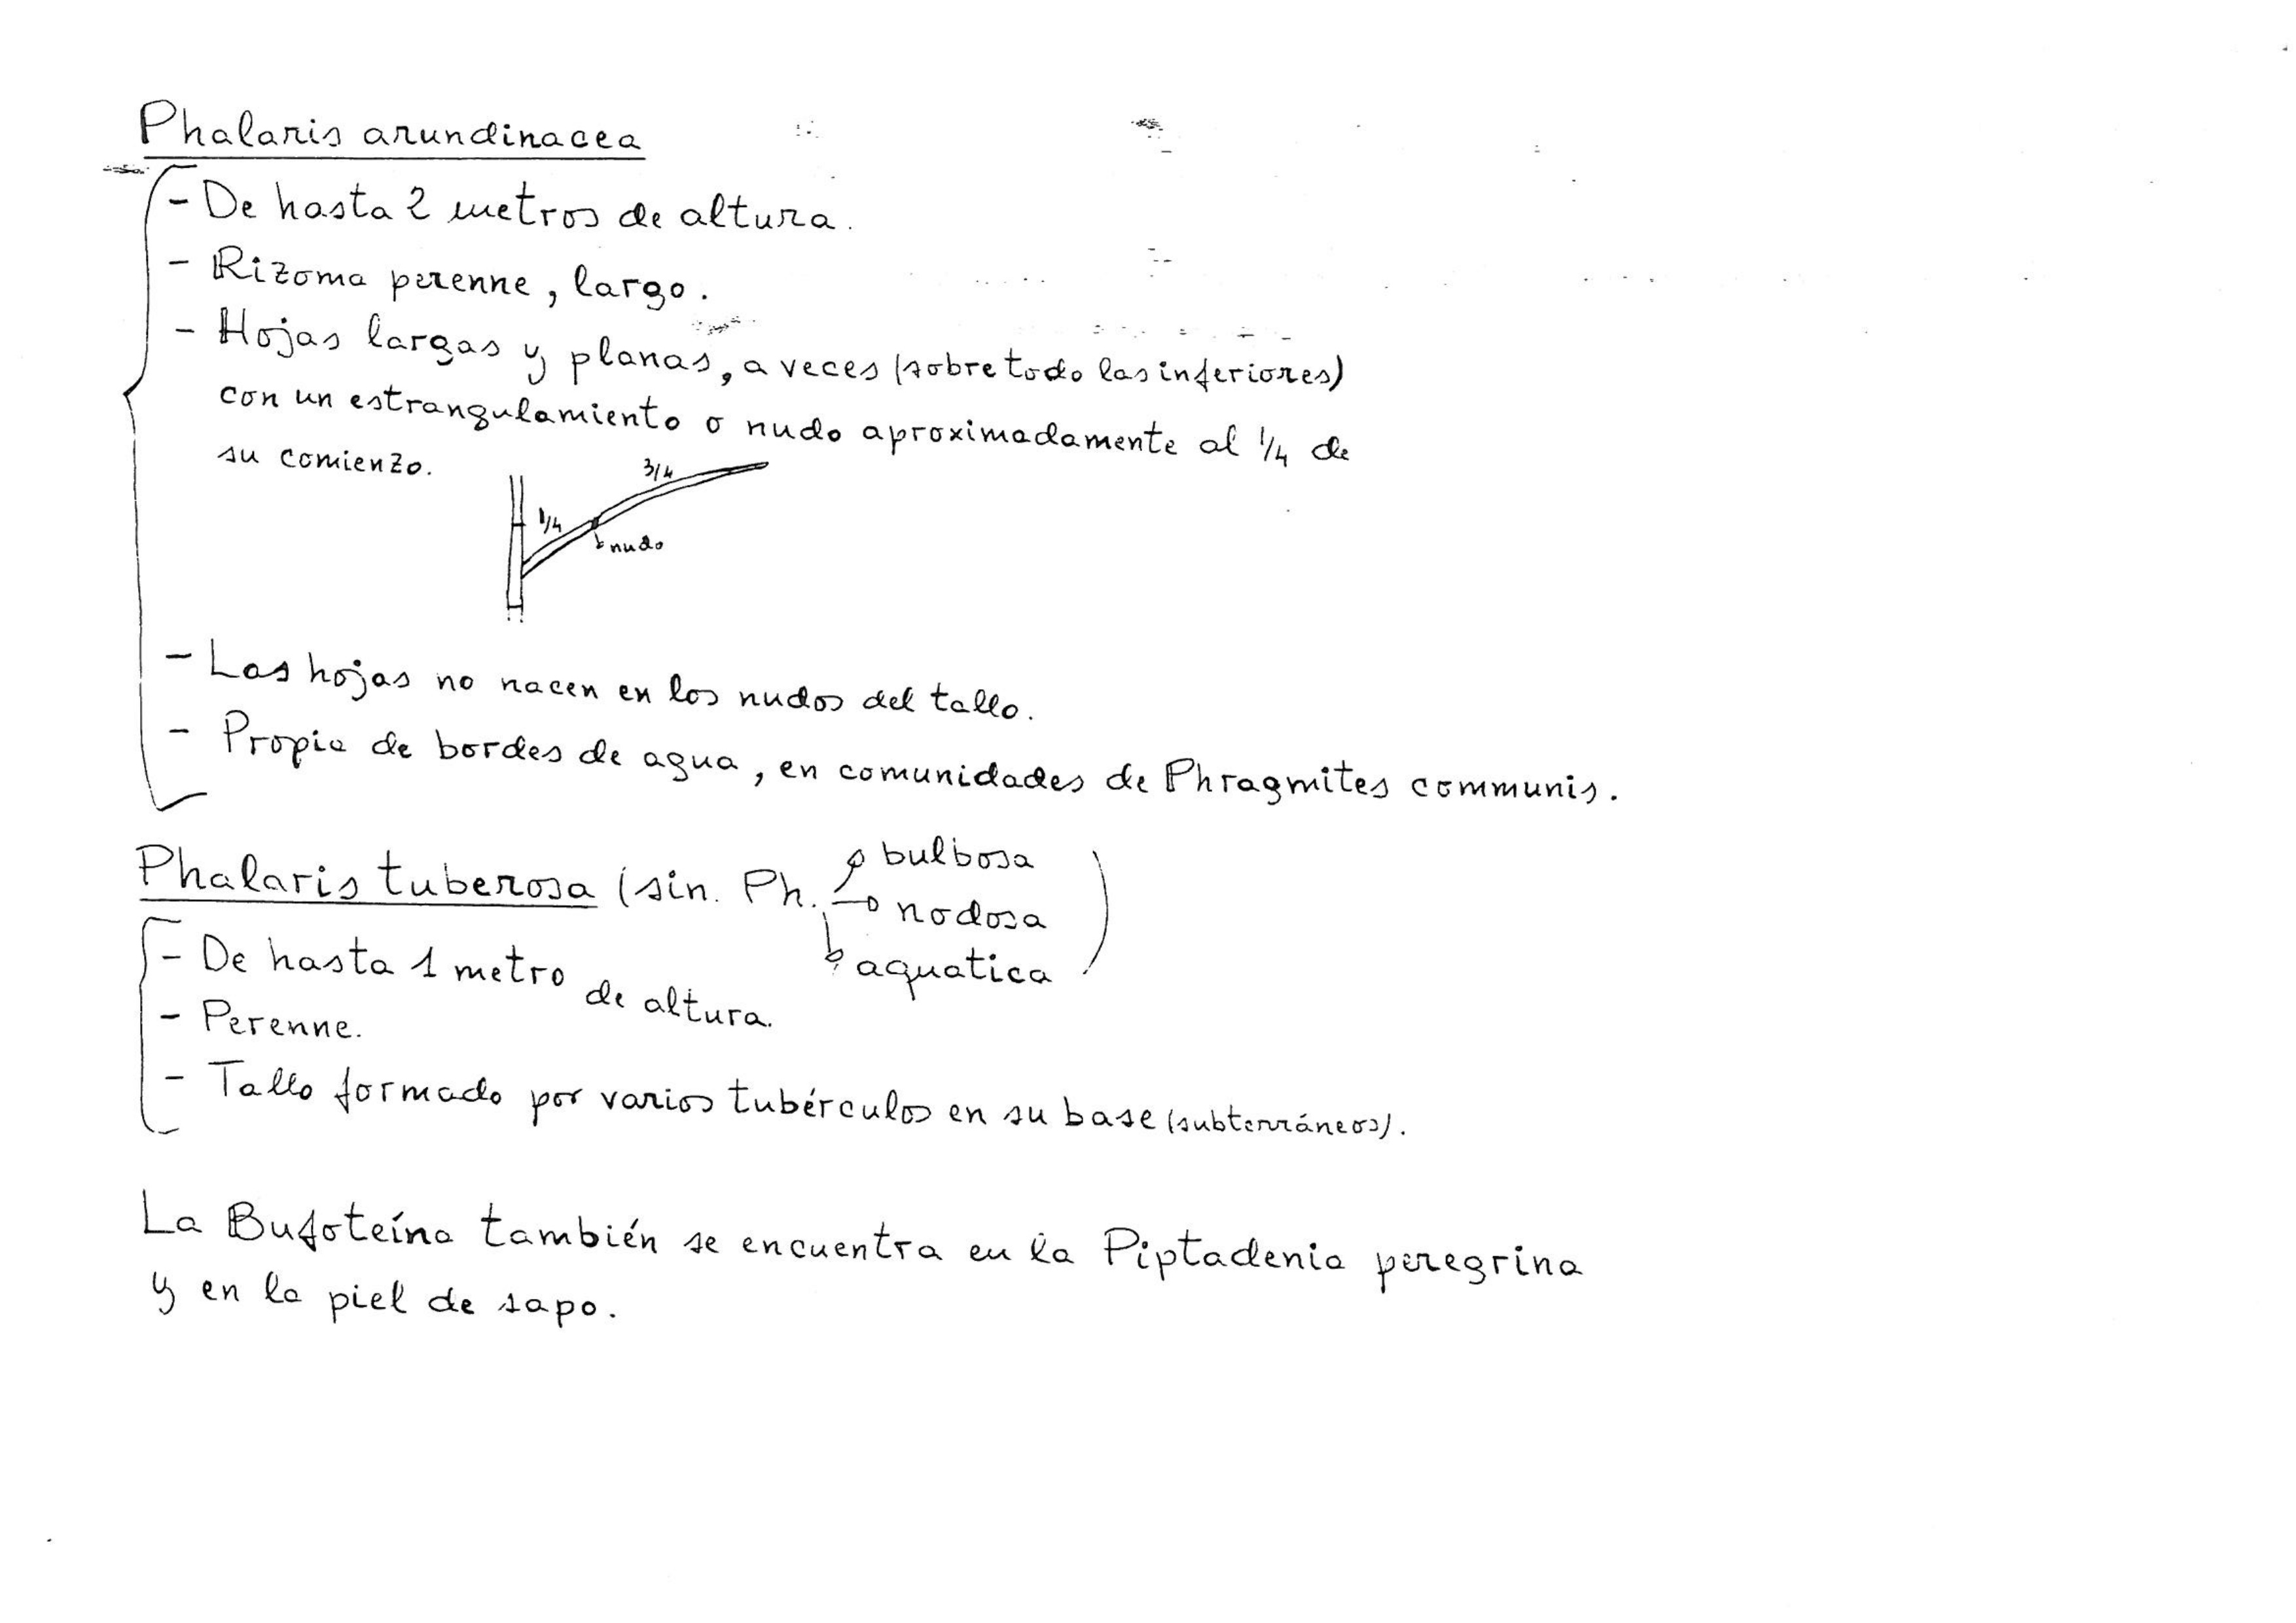 Phalaris arundinacea
- De hasta 2 metros de altura.
- Rizoma perenne, largo.
- Hojas largas y planas, a veces (sobre todo las inferiores)
con un estrangulamiento o nudo aproximadamente al 1/4 de
su comienzo.
3/4
1/4
nudo
- Las hojas no nacen en los nudos del tallo.
- Propia de bordes de agua, en comunidades de Phragmites communis.
Phalaris tuberosa (sin. Ph. bulbosa
nodosa
aquatica)
- De hasta 1 metro de altura.
- Perenne.
- Tallo formado por varios tubérculos en su base (subterráneos).
La Bufoteína también se encuentra en la Piptadenia peregrina
y en la piel de sapo.